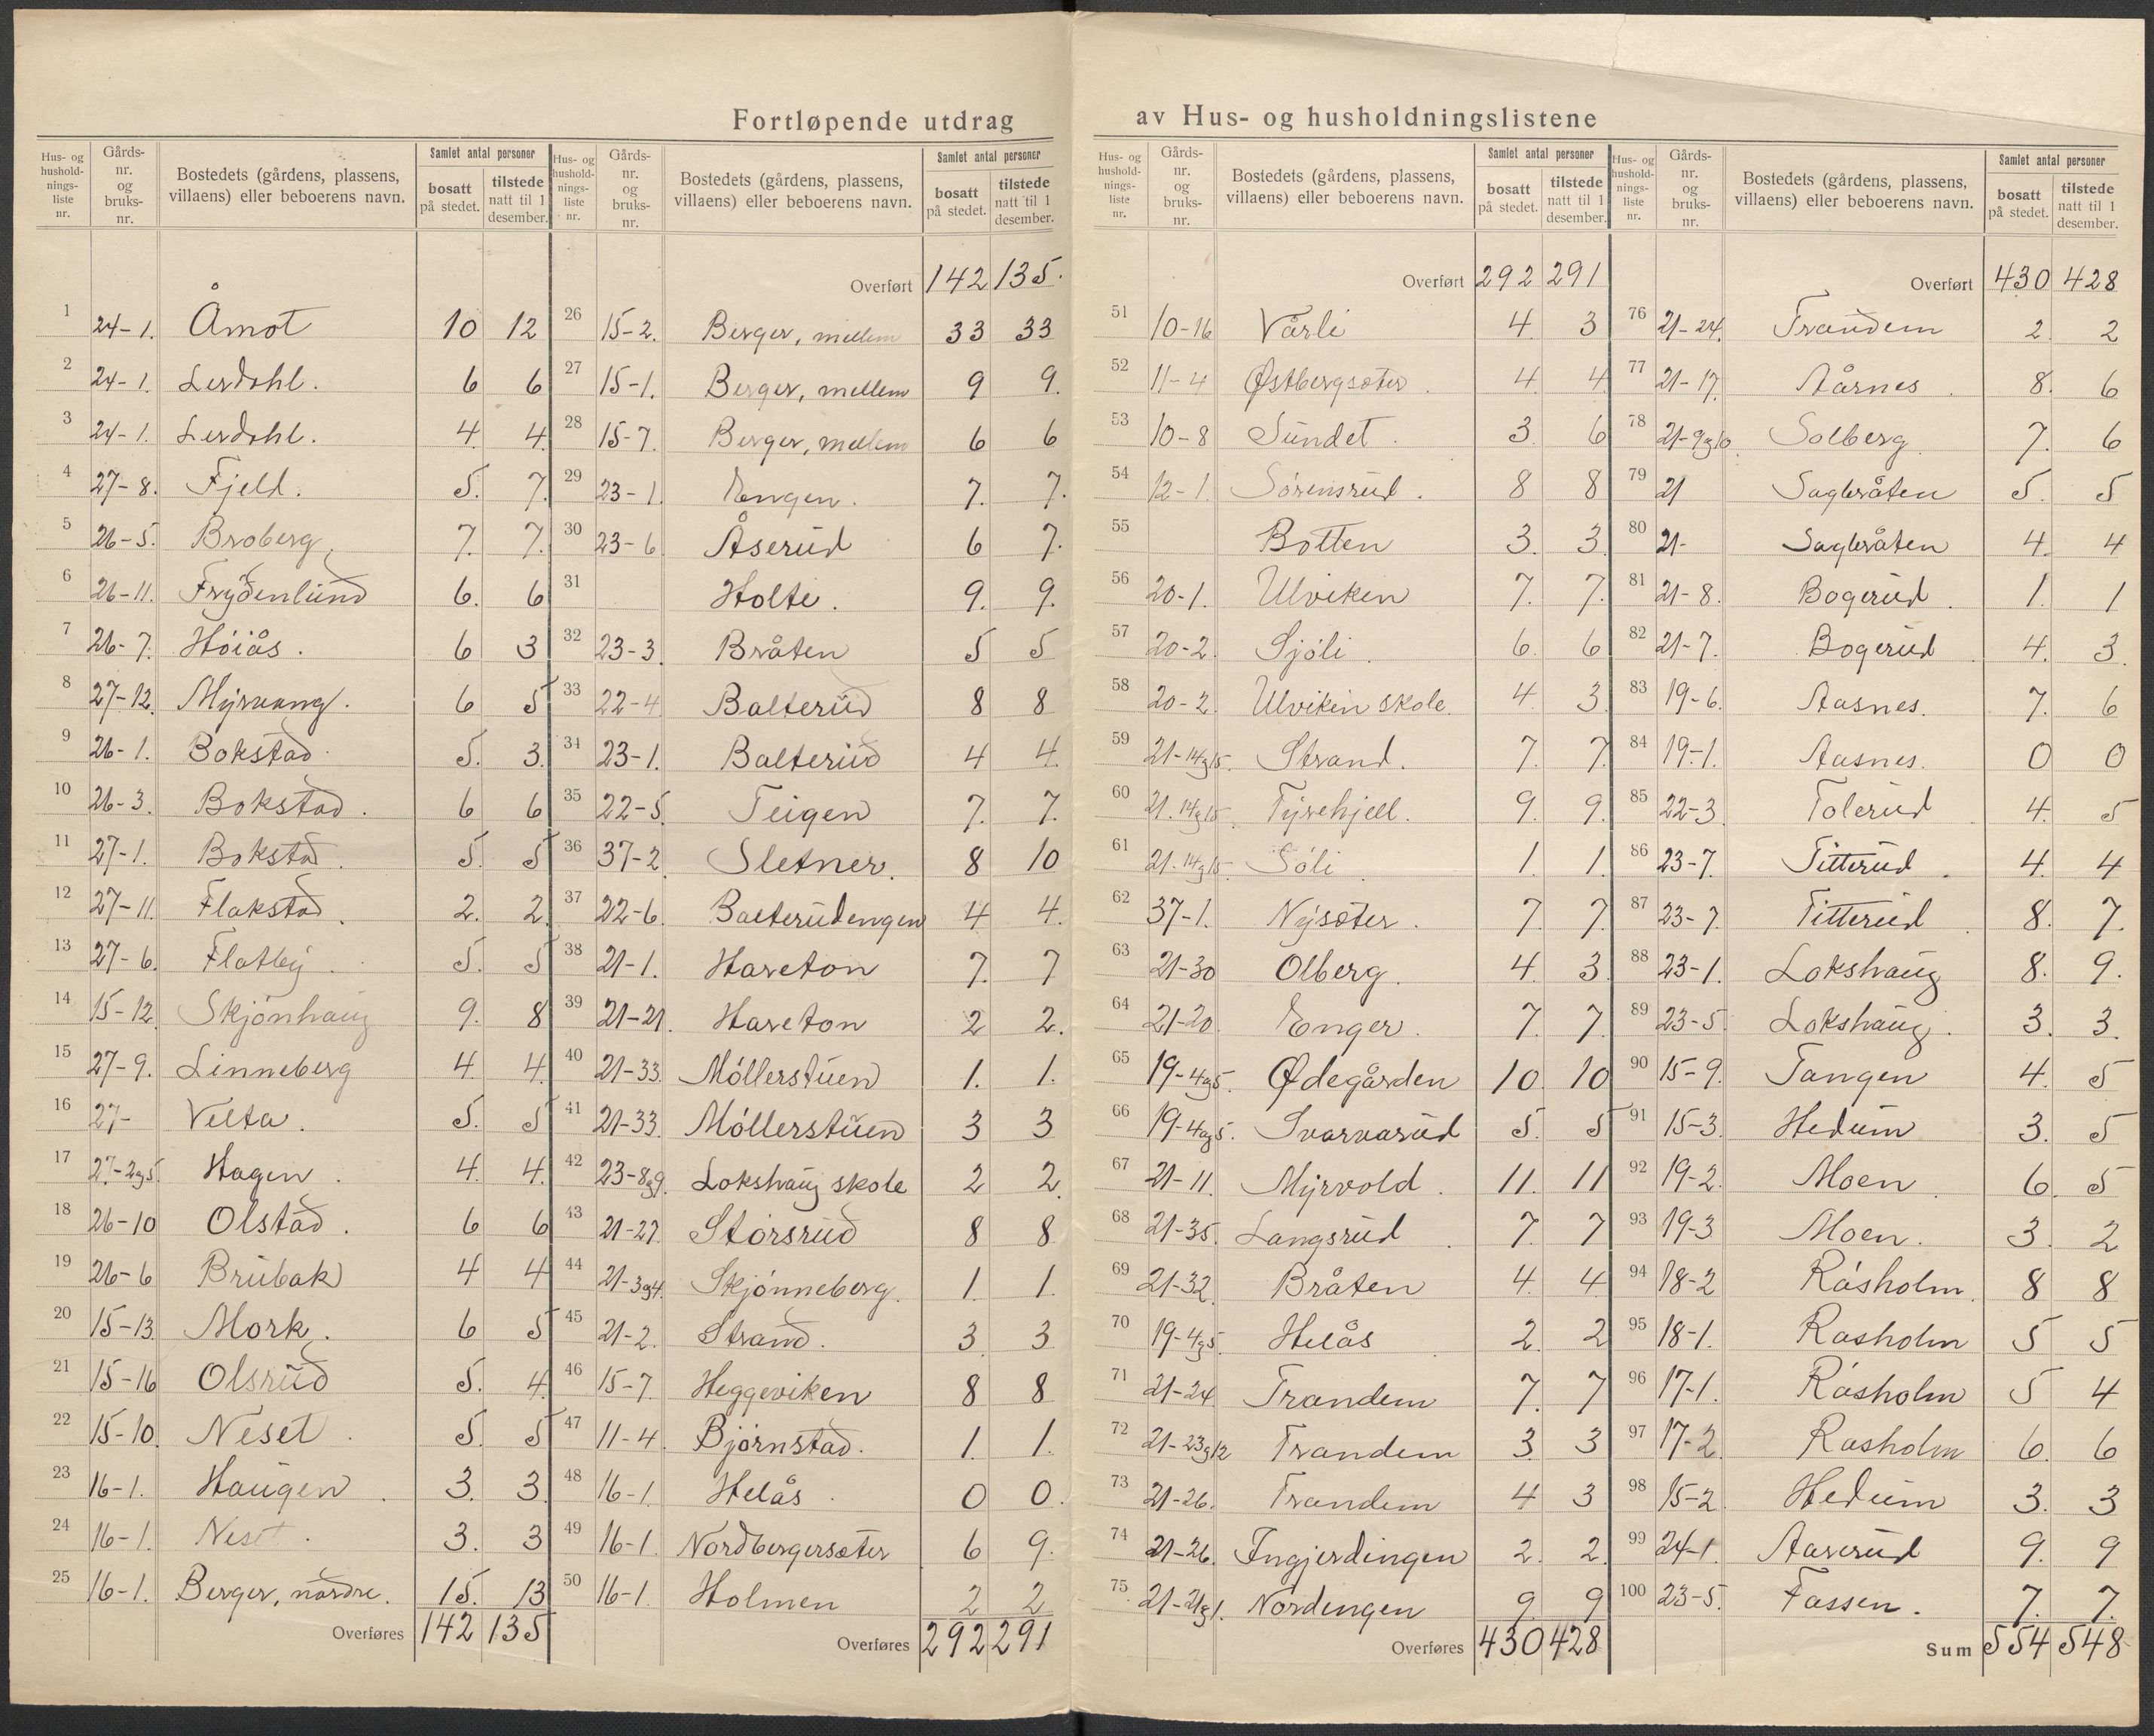 Fortløpende utdrag av Hus- og husholdningslistene
Hus- og husholdningsliste nr. | Gårds-nr. og bruks-nr. | Bostedets (gårdens, plassens, villaens) eller beboerens navn. | Samlet antal personer: bosatt på stedet. | tilstede natt til 1 desember.
1 24-1. Åmot 10 12
2 24-1. Lerdahl. 6 6
3 24-1. Lerdahl. 4. 4.
4 27-8. Fjeld. 5. 7.
5 26-5. Broberg. 7. 7.
6 26-11. Frydenlund 6. 6
7 26-7. Høiås. 6 3
8 27-12. Myrvang. 6 5
9 26-1. Bokstad. 5. 3.
10 26-3. Bokstad. 6 6
11 27-1. Bokstad. 5. 5
12 27-11. Flakstad. 2. 2
13 27-6. Flatby. 5. 5
14 15-12. Skjønhaug 9. 8
15 27-9. Linneberg 4. 4.
16 27- Velta. 5. 5
17 27-2og5. Hagen. 4. 4.
18 26-10 Olstad. 6 6
19 26-6 Brubak 4 4
20 15-13. Mork. 6 5
21 15-16 Olsrud 5. 4.
22 15-10. Neset. 5. 5
23 16-1. Haugen. 3. 3.
24 16-1. Neset. 3. 3
25 16-1. Berger, nordre. 15. 13
Overføres 142 135
Hus- og husholdningsliste nr. | Gårds-nr. og bruks-nr. | Bostedets (gårdens, plassens, villaens) eller beboerens navn. | Samlet antal personer: bosatt på stedet. | tilstede natt til 1 desember.
Overført 142 135.
26 15-2. Berger, mellem 33 33
27 15-1. Berger, mellem 9 9.
28 15-7. Berger, mellem 6 6
29 23-1. Engen. 7. 7.
30 23-6 Åserud 6 7.
31 Holte. 9. 9.
32 23-3. Bråten 5 5
33 22-4 Balterud 8 8
34 23-1. Balterud 4 4.
35 22-5. Teigen 7. 7.
36 37-2. Sletner. 8 10
37 22-6. Balterudengen 4 4.
38 21-1. Haveton 7. 7
39 21-21. Haveton 2 2.
40 21-33. Møllerstuen 1. 1.
41 21-33. Møllerstuen 3 3
42 23-8og9. Lokshaug skole 2 2.
43 21-27. Storsrud 8 8
44 21-3og4. Skjønneberg. 1. 1.
45 21-2. Strand. 3. 3
46 15-7 Heggeviken 8 8
47 11-4. Bjørnstad. 1. 1.
48 16-1. Helås. 0 0.
49 16-1. Nordbergersæter 6 9.
50 16-1. Holmen 2 2
Overføres 292 291
Hus- og husholdningsliste nr. | Gårds-nr. og bruks-nr. | Bostedets (gårdens, plassens, villaens) eller beboerens navn. | Samlet antal personer: bosatt på stedet. | tilstede natt til 1 desember.
Overført 292 291
51 10-16 Vårli 4. 3
52 11-4 Østbergsæter. 4. 4
53 10-8 Sundet. 3. 6
54 12-1. Sørensrud. 8 8
55 Botten 3. 3
56 20-1. Ulviken 7. 7.
57 20-2. Sjøli. 6. 6
58 20-2. Ulviken skole. 4 3.
59 21-14og15. Strand. 7. 7.
60 21.14og15. Tyrehjell. 9. 9.
61 21.14og15. Søli. 1. 1.
62 37-1. Nysæter. 7. 7.
63 21-30 Olberg. 4. 3.
64 21-20. Enger. 7. 7.
65 19-4og5. Ødegården 10. 10
66 19-4og5. Svarvarud 5. 5
67 21-11. Myrvold. 11. 11
68 21-35. Langsrud. 7. 7
69 21-32. Bråten 4. 4
70 19-4og5. Helås 2. 2
71 21-24. Trandem 7. 7
72 21-23og12 Trandem 3. 3
73 21-26. Trandem 4 3
74 21-26. Ingjerdingen 2. 2.
75 21-21og1. Nordengen 9. 9
Overføres 430 428
Hus- og husholdningsliste nr. | Gårds-nr. og bruks-nr. | Bostedets (gårdens, plassens, villaens) eller beboerens navn. | Samlet antal personer: bosatt på stedet. | tilstede natt til 1 desember.
Overført 430 428
76 21-24. Trandem 2. 2
77 21-17. Aårnes. 8. 6
78 21-9og10. Solberg. 7. 6
79 21 Sagbråten 5. 5
80 21- Sagbråten 4. 4
81 21-8. Bogerud. 1. 1
82 21-7. Bogerud. 4. 3.
83 19-6. Aasnes. 7. 6
84 19-1. Aasnes. 0 0
85 22-3. Tolerud. 4. 5
86 23-7. Titterud. 4. 4
87 23-7. Titterud. 8. 7.
88 23-1. Lokshaug 8. 9.
89 23-5. Lokshaug. 3. 3.
90 15-9. Tangen 4. 5
91 15-3. Hedum 3. 5
92 19-2. Moen. 6. 5
93 19-3 Moen. 3. 2
94 18-2 Råsholm. 8 8
95 18-1. Rasholm 5 5
96 17-1. Råsholm 5 4
97 17-2. Rasholm 6. 6
98 15-2. Hedum 3. 3
99 24-1. Aaserud 9. 9
100 23-5. Fassen. 7. 7.
Sum 554 548